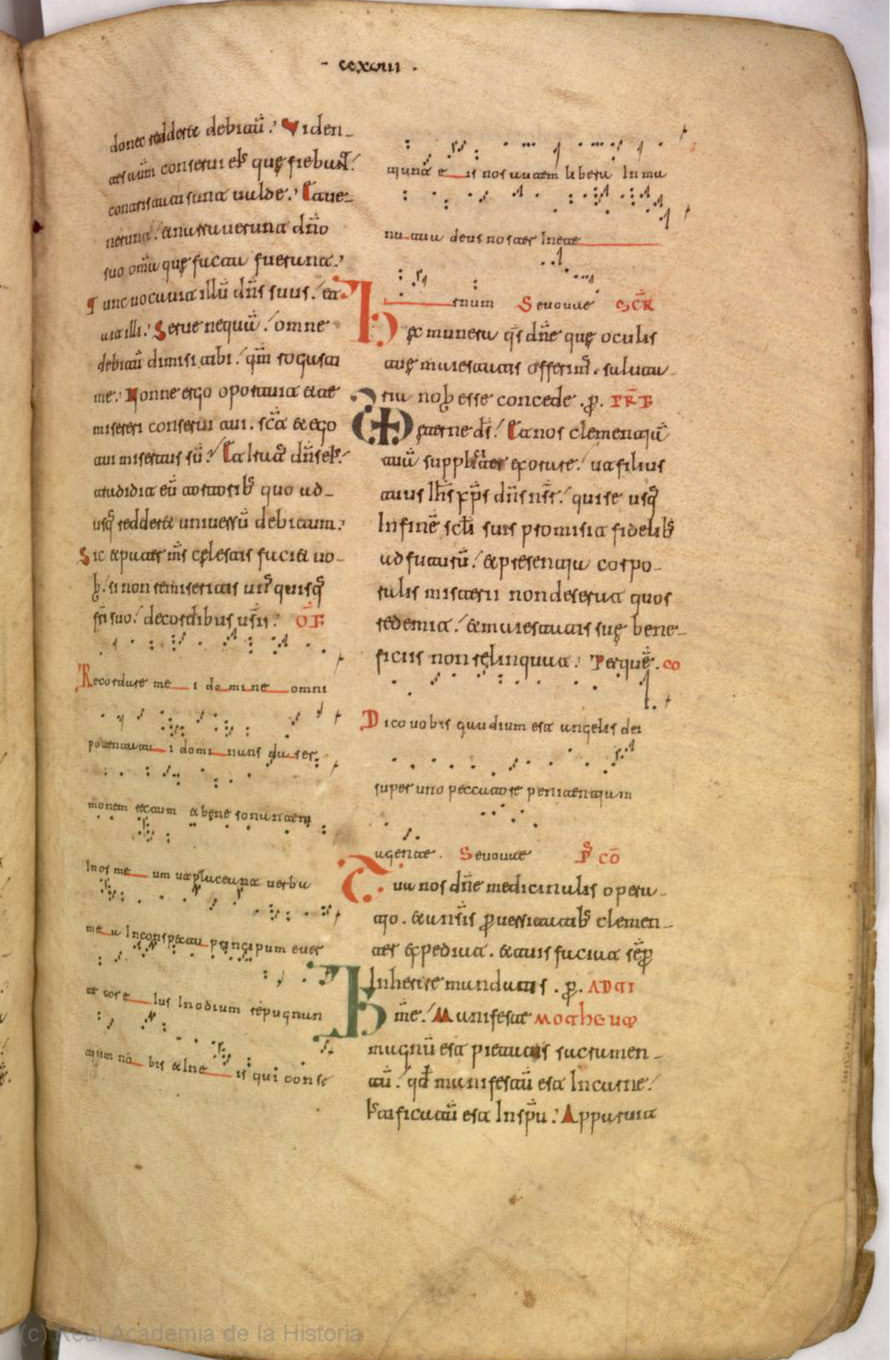 donec redderet debitū. Viden
tes aūm conserui ei᷒ quę fiebāt.
contristati sunt ualde. Et ue
nerunt. et narrauerunt dn̄o
suo om̄ia quę facta fuerunt.
Tunc uocauit illū dn̄s suus. et
ait illi. Serue nequā. omne
debitū dimisi tibi. qm̄ rogasti
me. Nonne ergo oportuit et te
misereri conserui tui. et ego
tui misertus sū. Et dn̄s ei᷒.
tradidit eū tortorib᷒ quo ad
usq᷒ redderet uniuersū debitum.
Sic et pater ms̄ cęlestis faciet uo
b᷒. si non remiseritis un᷒quisq᷒
fr̄i suo. de cordibus ur̄is. OF̄
Recordare me i domine omni
potentatui dominans da ser
monem rectum et bene sonantem
In os me um ut placeant uerba
mea In conspectu principum euer
te cor e ius In odium repugnan
tium no bis et In e is qui conse
tiunt e is nos autem libera In ma
nu tua deus noster In eter
num Seuouae SCR̄
Hęc munera qs̄ dn̄e quę oculis
tuę maiestatis offerim᷒. saluta
ria nob᷒ esse concede. p. PRF
Eterne ds̄. Et nos clementiā
tuā suppliciter exorare. ut filius
tuus ih̄s xp̄s dn̄s nr̄s. qui se usq᷒
In finē scl̄i suis promisit fidelib᷒
adfuturū. et presentia corpo
ralis misterii non deserat quos
redemit. et maiestatis suę bene
ficiis non relinquat. Per quē. CO
Dico uobis gaudium est angelis dei
super uno peccatore penitentiam
agente. Seuouae P̄ CŌ
Tua nos dn̄e medicinalis opera
tio. et a nr̄is peruersitatib᷒ clemen
ter expediat. et tuis faciat sēp
Inherere mandatis. p. AD TI
Manifeste
magnū est pietatis sacramen
tū. qd̄ manifestū est In carne.
Iustificatū est In spū. Apparuit